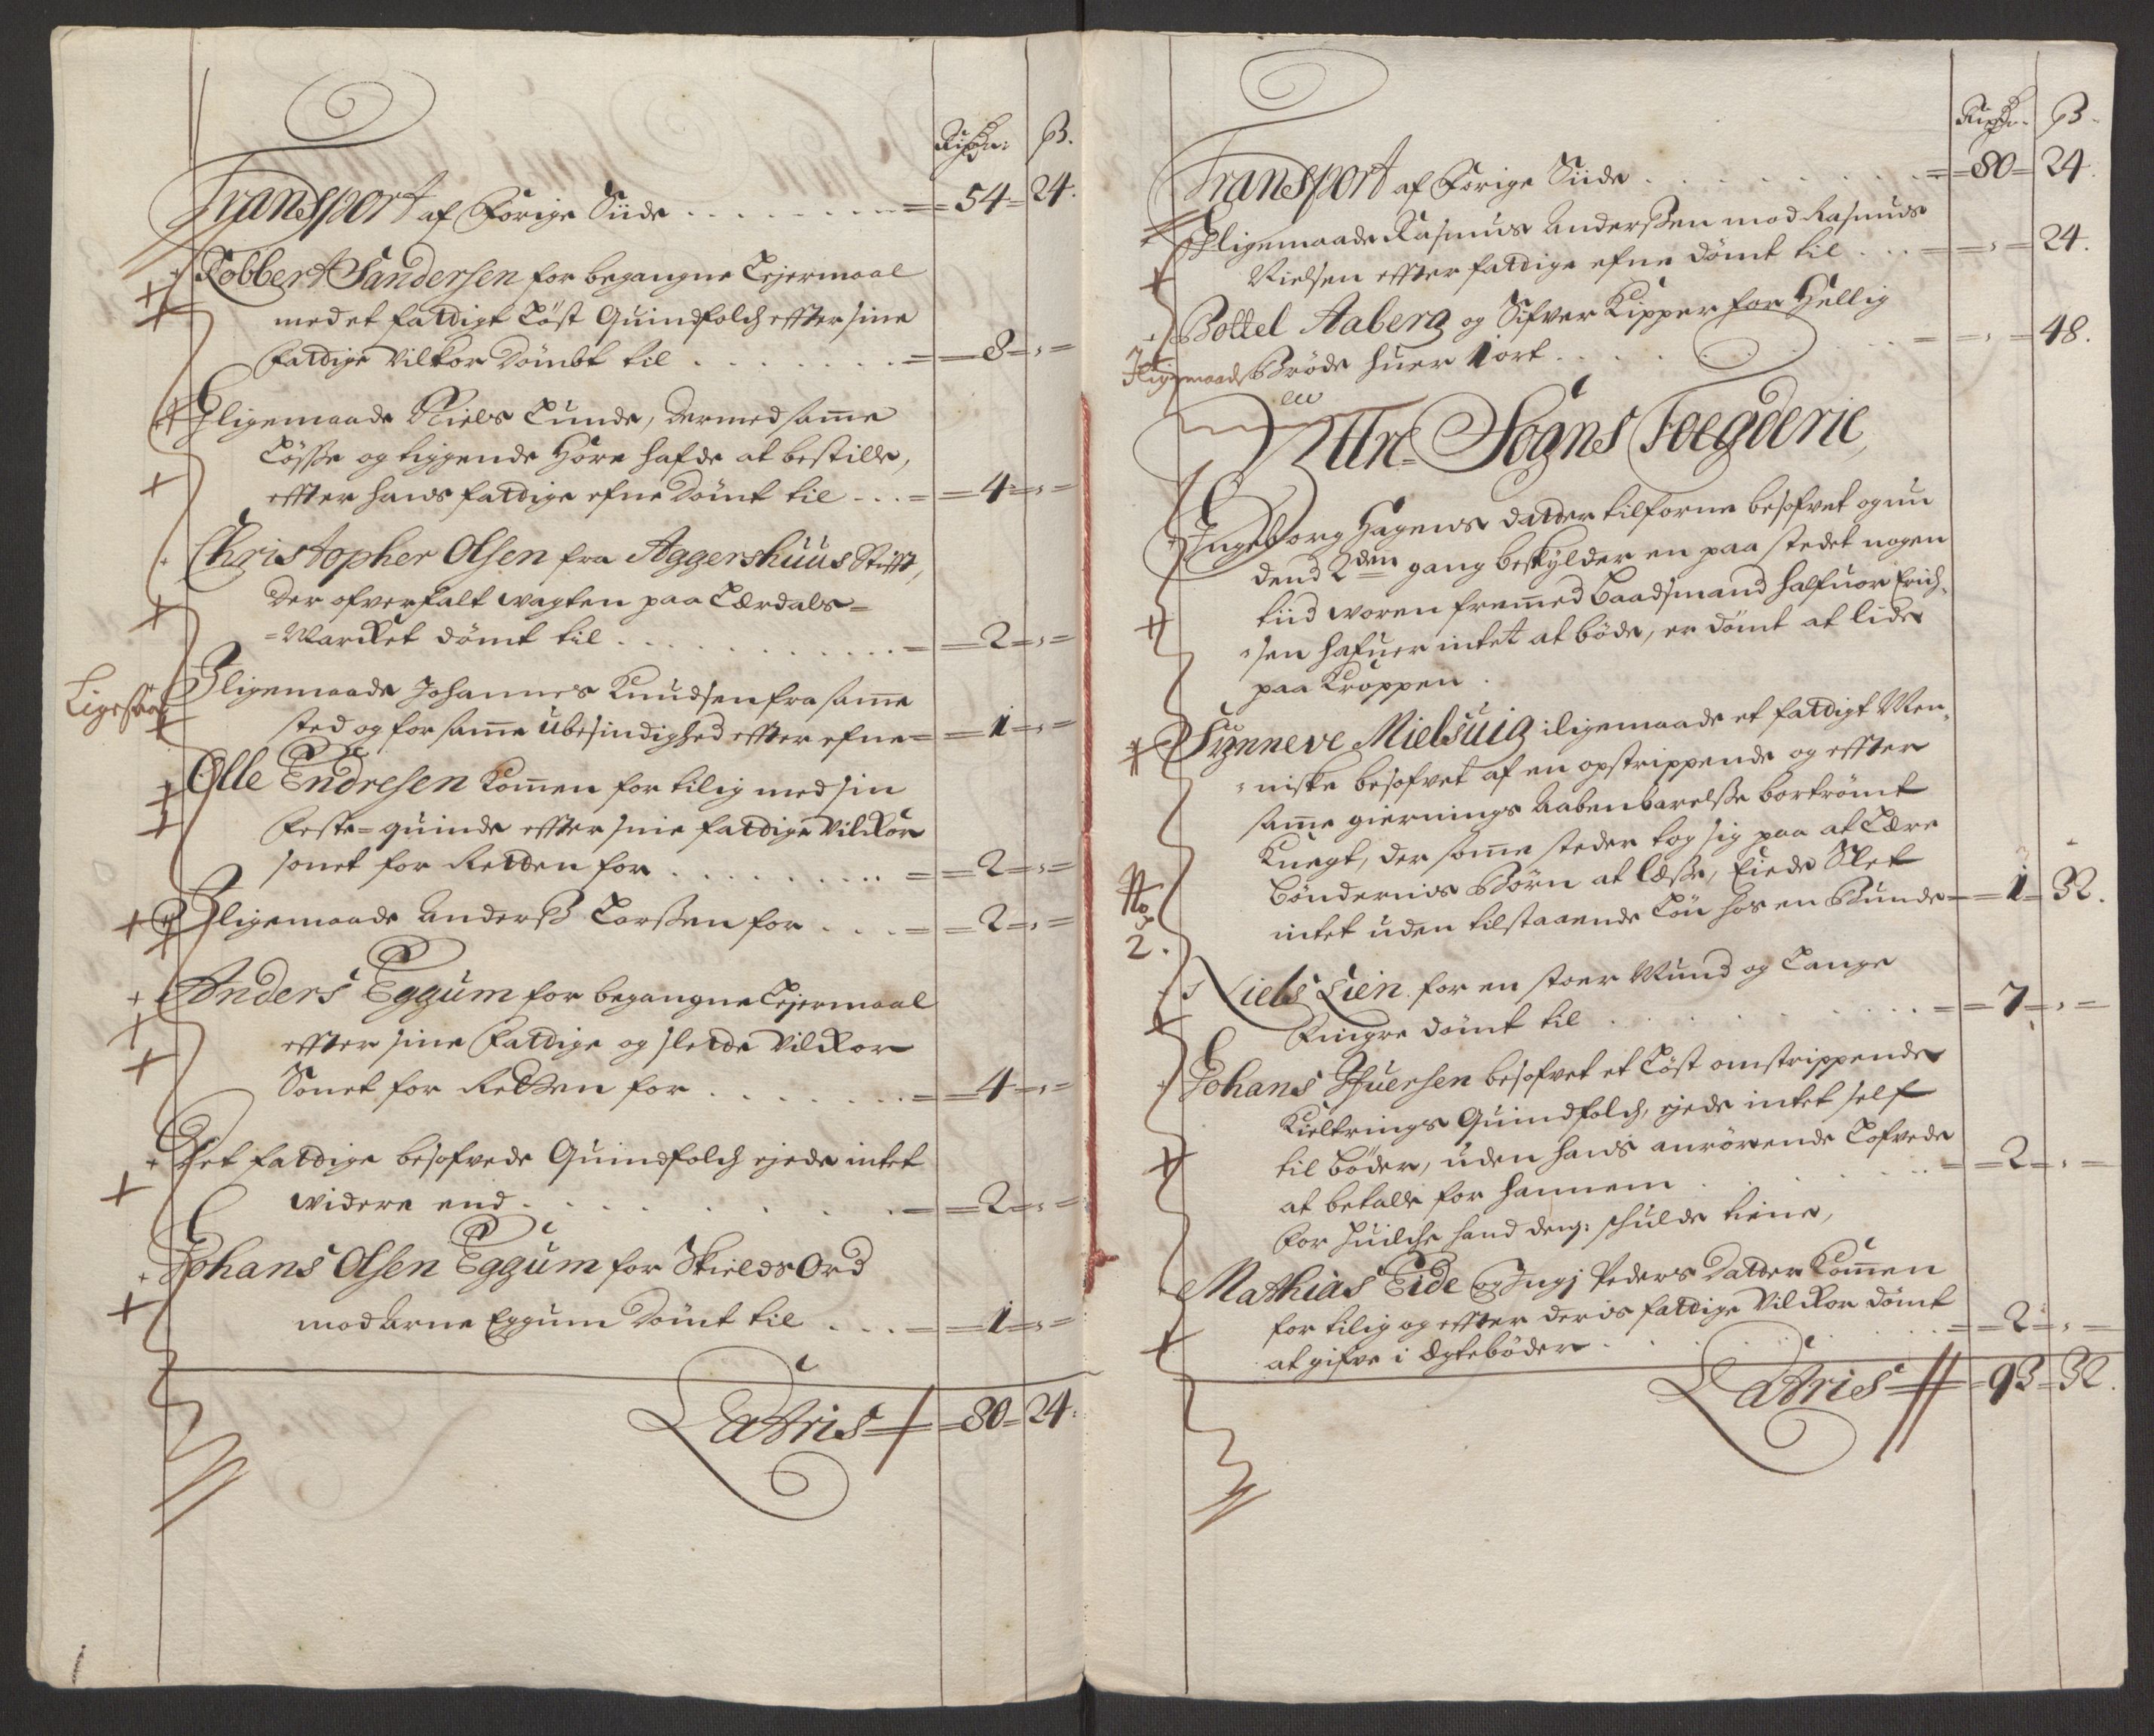 Rixdr: ß.
Transport af Forige Siide = 54 = 24.
Robbert Sandersen for begangne Lejermaal
med et fattigt Løst Quindfolch effter sine
fattige vilkor Dømbt til = 8 = " =
Iligemaade Niels Lunde, dermed samme
Løsse og liggende Hore hafde at bestille,
effter hans fattige efne dømt til = 4 = " =
Christopher Olsen fra Aggershuus Stifft,
der ofverfalt wagten paa Lærdals=
=Marcket dømt til = 2 = " =
Ligesaa
Iligemaade Johannes Knudsen fra samme
sted og for samme ubesindighed effter efne = 1 = " =
Olle Endresen kommen for tilig med sin
feste=quinde effter sine fattige vilckor
sonet for Retten for = 2 = " =
Iligemaade Anderß Larßen for = 2 = " =
Anders Eggum for begangne Lejermaal
effter sine fattige og slette vilckor
Sonet for Retten for = 4 = " =
Det fattige besofvede Quindfolch ejede intet
widere end = 2 = " =
Johans Olsen Eggum for Skields Ord
mod Arne Eggum Dømt til = 1 = " =
Latris = 80 = 24.
Rixdr. ß.
Transport af Forige Siide = 80 = 24.
Iligemaade Rasmus Anderßen mod Rasmus
Nielsen effter fattige efne dømt til = " = 24.
Bottel Aaberg og Sifver Kipper for Hellig
Iligemaade Brøde huer 1 ort = " = 48.
Yttre Sogns Foegderie,
Ingeborg Hagens datter tilforne besofvet og nu
dend 2den gang beskylder en paa stedet nogen
tiid woren fremmed baadsmand Halfuor Erich-
sen hafuer intet at bøde, er dømt at lide
paa kroppen.
Synneve Mielsuig iligemaade et fattigt Men-
niske besofvet af en opstrippende og effter
samme giernings Aabenbarelsse bortrømt
Knegt, der somme steder tog sig paa at lære
Bøndernis Børn at læsse, Eiede Slet
intet uden tilstaaende løn hos en Bunde = 1 = 32.
No
2.
Niels Lien for en stoer Mund og Lange
Fingre dømt til = 7 = " =
Johans Ifuersen besofvet et Løst omstrippende
Kieltrings Quindfolch, ejede intet self
til bøder, uden hans anrørende Lofvede
at betalle for hannem = 2 = " =
for huilche hand deng: schulde tiene,
Mathias Eide og Ingj Peders datter kommen
for tilig og effter deris fattige vilckor dømt
at gifve i Ægtebøder = 2 = " =
Latris = 93 = 32.